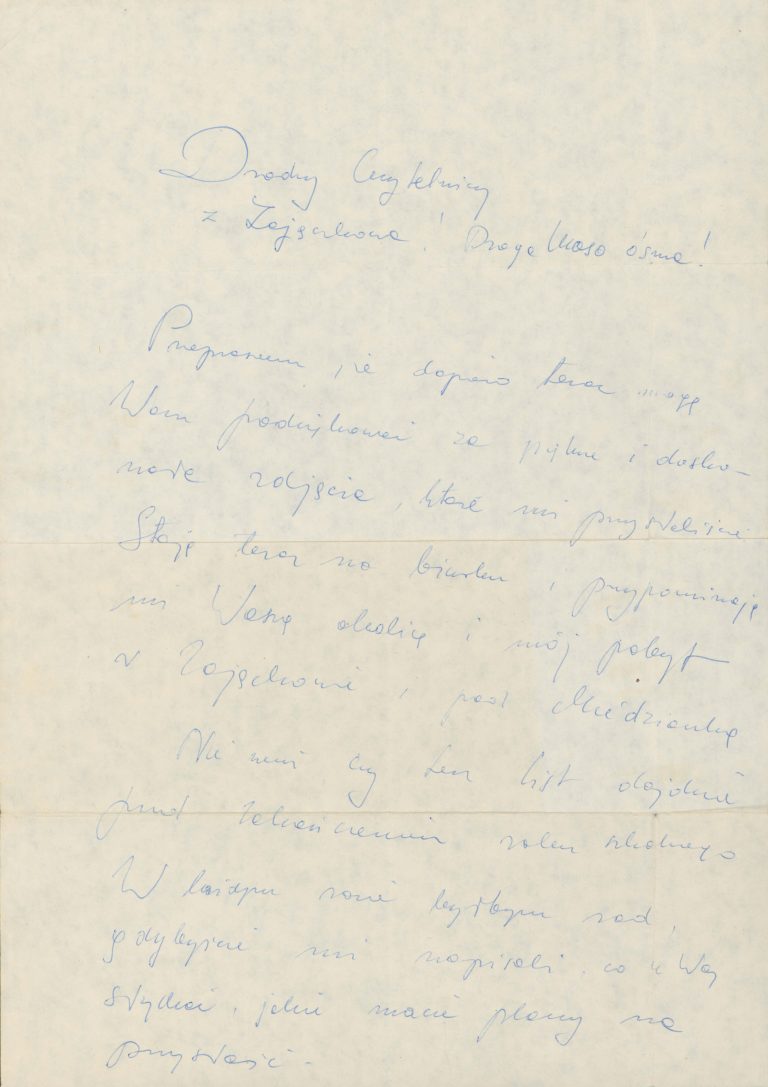 Drodzy Czytelnicy
z Zajączkowa! Droga Klaso ósma!
Przepraszam, że dopiero teraz mogę
Wam podziękować za piękne i dosko-
nałe zdjęcia, które mi przysłaliście.
Stoją teraz na biurku i przypominają
mi Waszą okolicę i mój pobyt
w Zajączkowie i pod Miedzianką
Nie wiem czy ten list dojdzie
przed zakończeniem roku szkolnego
W każdym razie byłbym rad,
gdybyście mi napisali, co u Was
słychać, jakie macie plany na
przyszłość.